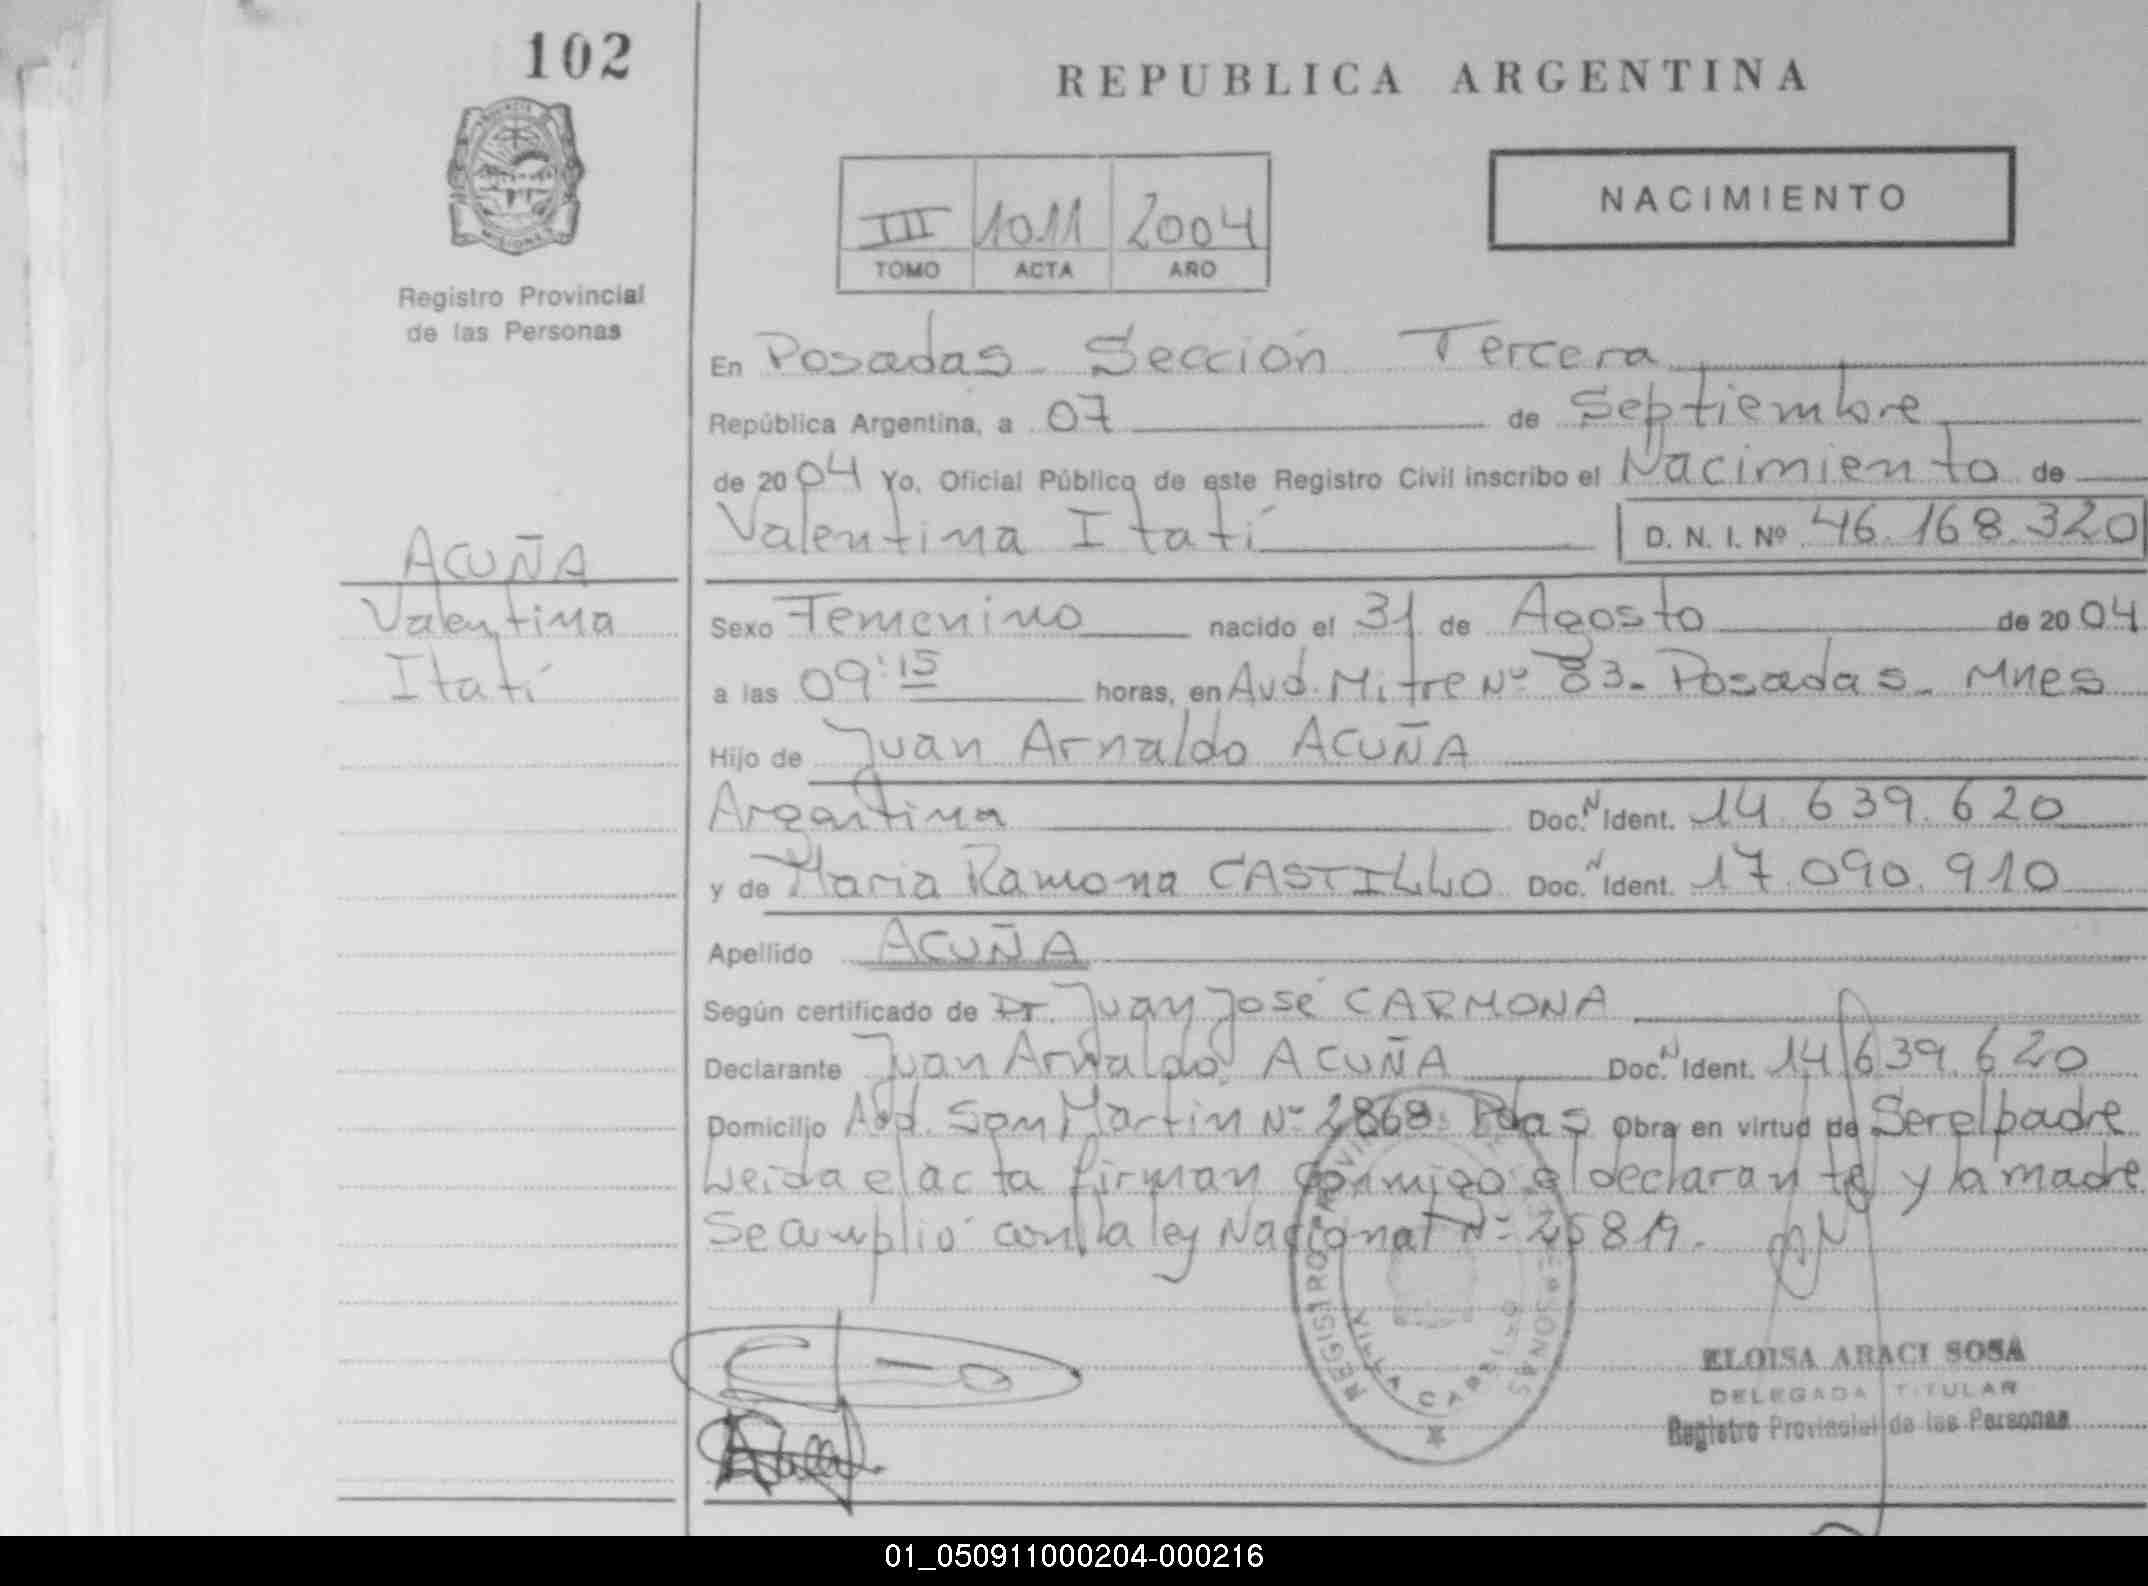 102
REPUBLICA ARGENTINA
PROVINCIA
MISIONES
NACIMIENTO
III 1011 2004
TOMO ACTA AÑO
Registro Provincial
de las Personas
En Posadas - Sección Tercera
República Argentina, a 07 de Septiembre
de 2004 Yo, Oficial Público de este Registro Civil inscribo el Nacimiento de
Valentina Itatí D. N. I. Nº 46.168.320
ACUÑA
Valentina
Itatí
Sexo Femenino nacido el 31 de Agosto de 2004
a las 09:15 horas, en Avd. Mitre Nº 83 - Posadas - Mnes
Hijo de Juan Arnaldo ACUÑA
Argentina Doc. N Ident. 14.639.620
y de Maria Ramona CASTILLO Doc. N Ident. 17.090.910
Apellido ACUÑA
Según certificado de Dr. Juan José CARMONA
Declarante Juan Arnaldo ACUÑA Doc. N Ident. 14.639.620
Domicilio Avd. San Martín Nº 2868 Pdas Obra en virtud de Ser el padre
Leida el acta firman conmigo el declarante y la madre
Se cumplió con la ley Nacional Nº 25819.
REGISTRO PROVINCIAL PERSONAS
VILLA CABELLO
ELOISA ARACI SOSA
DELEGADA TITULAR
Registro Provincial de las Personas
01_050911000204-000216